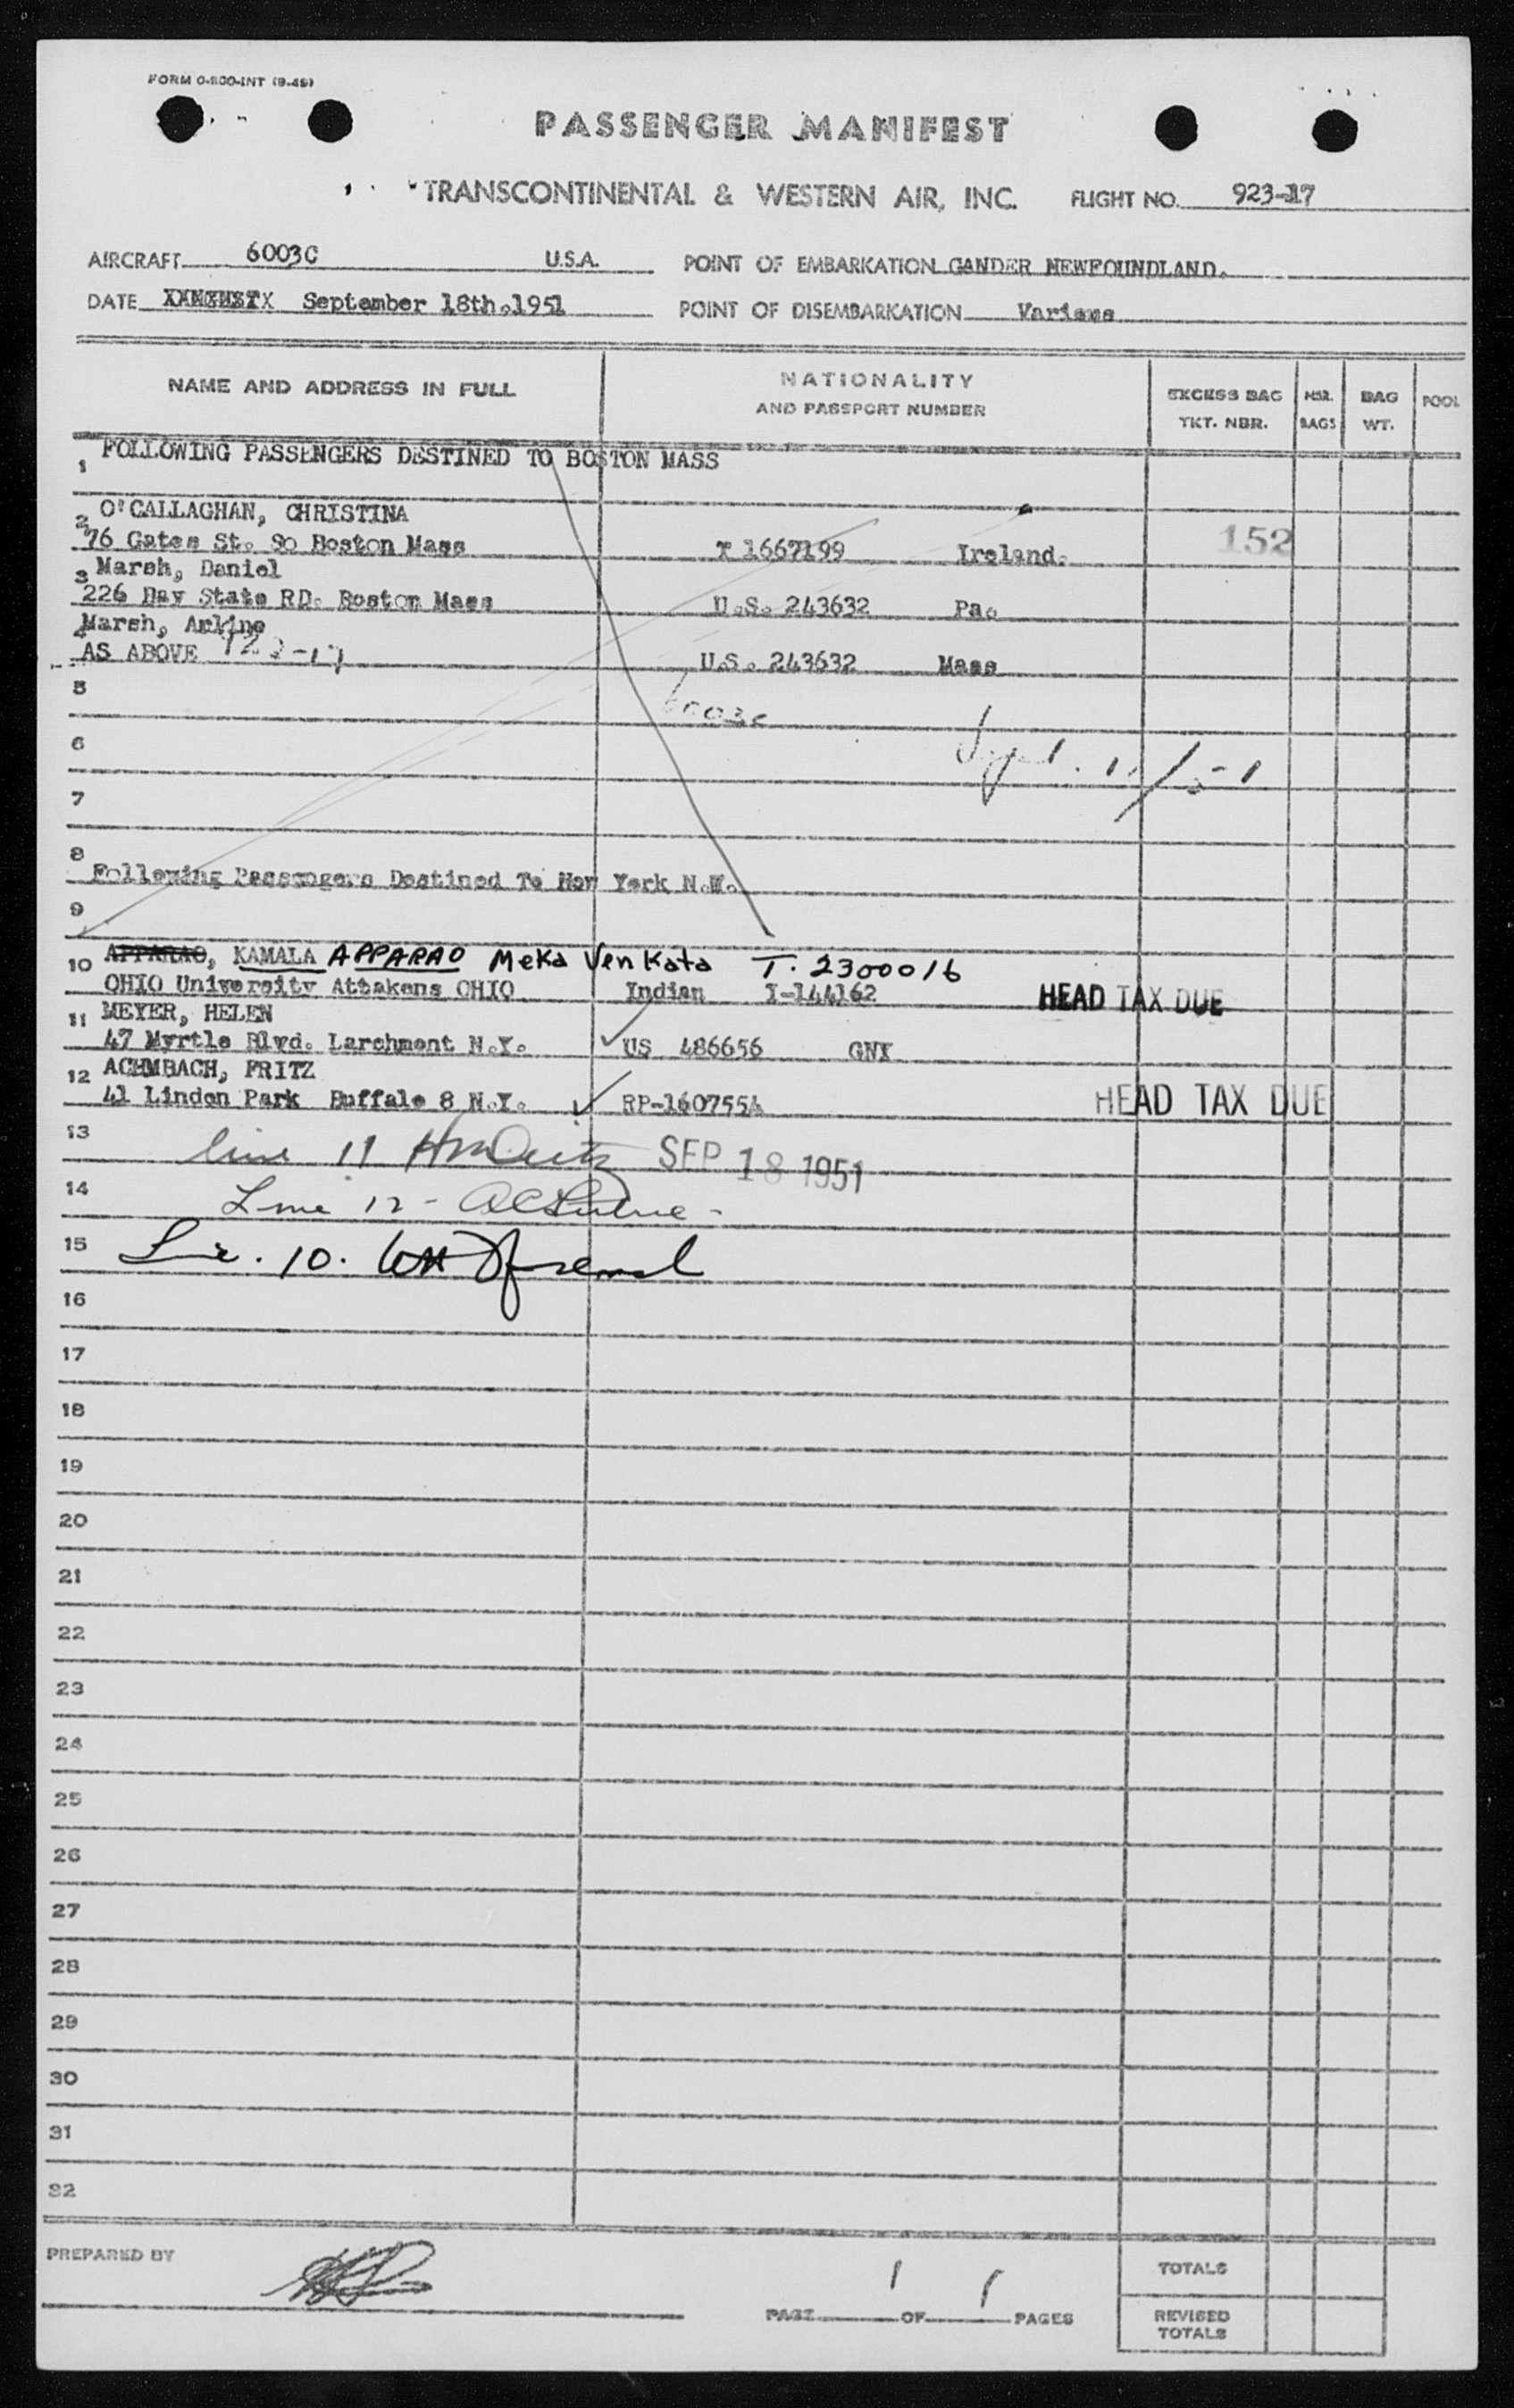 FORM O-800-INT (9-49)
PASSENGER MANIFEST
TRANSCONTINENTAL & WESTERN AIR, INC. FLIGHT NO. 923-17
AIRCRAFT 6003C U.S.A. POINT OF EMBARKATION GANDER NEWFOUNDLAND.
DATE September 18th.1951 POINT OF DISEMBARKATION Various
NAME AND ADDRESS IN FULL NATIONALITY AND PASSPORT NUMBER EXCESS BAG TKT. NBR. NBR. BAGS BAG WT. POOL
1 FOLLOWING PASSENGERS DESTINED TO BOSTON MASS
2 O'CALLAGHAN, CHRISTINA
76 Gates St. So Boston Mass 1667199 Ireland. 152
3 Marsh, Daniel
226 Bay State RD. Boston Mass U.S. 243632 Pa.
4 Marsh, Arline
AS ABOVE 923-17 U.S. 243632 Mass
5
6003c
6 Sept. /51
7
8
Following Passengers Destined To New York N.Y.
9
10 APPARAO, KAMALA APPARAO Meka Venkata T. 2300016
OHIO University Attakens OHIO Indian I-144162 HEAD TAX DUE
11 MEYER, HELEN
47 Myrtle Blvd. Larchmont N.Y. US 486656 GNY
12 ACHMBACH, FRITZ
41 Linden Park Buffalo 8 N.Y. RP-1607554 HEAD TAX DUE
13 line 11 SEP 18 1951
14 Line 12 -
15 Line. 10.
16
17
18
19
20
21
22
23
24
25
26
27
28
29
30
31
32
PREPARED BY PAGE 1 OF 1 PAGES TOTALS
REVISED TOTALS